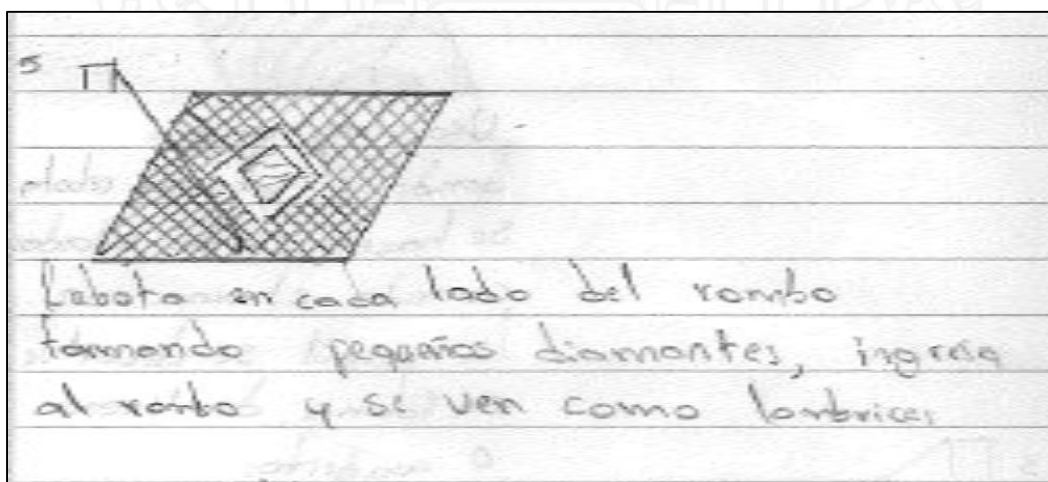 5
Rebota en cada lado del rombo
formando pequeños diamantes, ingresa
al rombo y se ven como lombrices